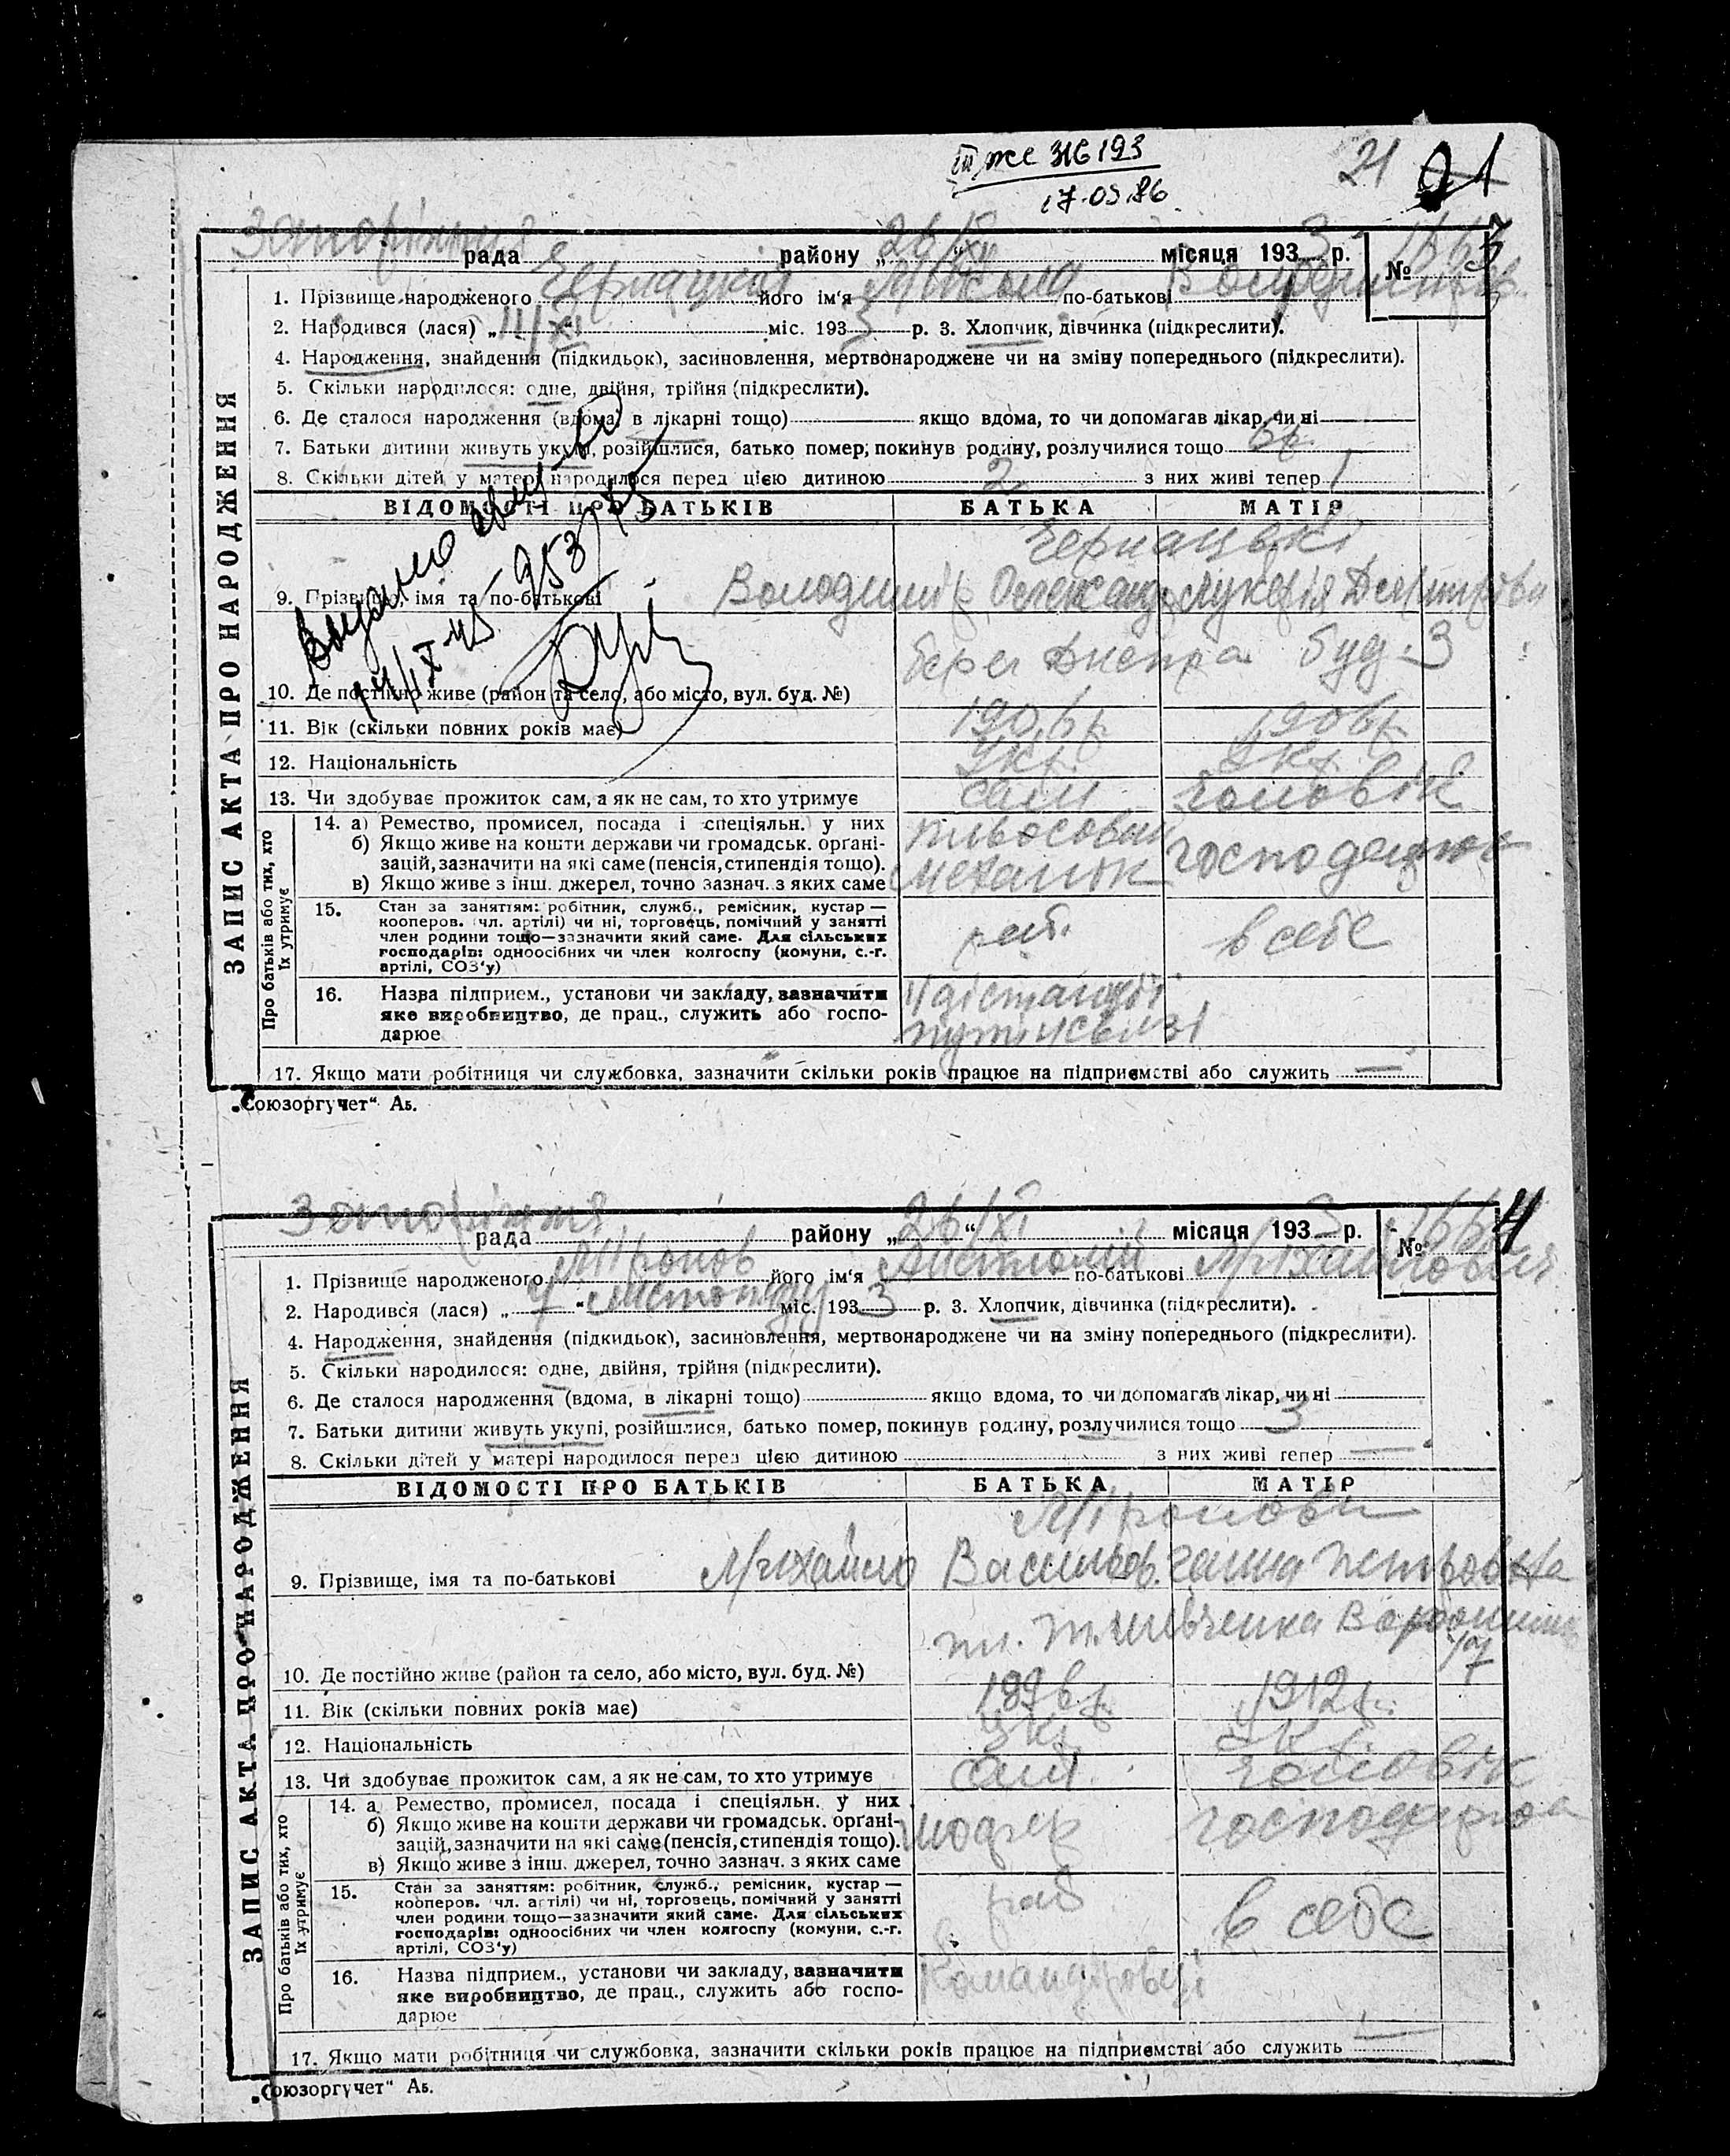 ІІІ же 316193
17.03.86
21
Запоріжжя рада району „26/XI“ місяця 1933 р. №
1. Прізвище народженого його ім'я Микола по-батькові Володимиров.
2. Народився (лася) „ міс. 1933 р. 3. Хлопчик, дівчинка (підкреслити).
4. Народження, знайдення (підкидьок), засиновлення, мертвонароджене чи на зміну попереднього (підкреслити).
5. Скільки народилося: одне, двійня, трійня (підкреслити).
6. Де сталося народження (вдома, в лікарні тощо) якщо вдома, то чи допомагав лікар, чи ні
7. Батьки дитини живуть укупі, розійшлися, батько помер, покинув родину, розлучилися тощо 6р.
8. Скільки дітей у матері народилося перед цією дитиною 2 з них живі тепер 1
ВІДОМОСТІ ПРО БАТЬКІВ БАТЬКА МАТІР
9. Прізвище, імя та по-батькові Володимір Олександр Лукерія Дмитрівна
берег Днепра буд. 3
10. Де постійно живе (район та село, або місто, вул. буд. №)
11. Вік (скільки повних років має) 1906р. 1906р.
12. Національність Укр. Укр.
13. Чи здобуває прожиток сам, а як не сам, то хто утримує сам чоловік
14. а) Ремество, промисел, посада і спеціяльн. у них
б) Якщо живе на кошти держави чи громадськ. орґані-
зацій, зазначити на які саме (пенсія, стипендія тощо).
в) Якщо живе з інш. джерел, точно зазнач. з яких саме механік
15. Стан за заняттям: робітник, служб., ремісник, кустар —
кооперов. чл. артілі) чи ні, торговець, помічний у занятті
член родини тощо—зазначити який саме. Для сільських
господарів: одноосібних чи член колгоспу (комуни, с.-г.
артілі, СОЗ'у) роб. в себе
16. Назва підприєм., установи чи закладу, зазначити
яке виробництво, де прац., служить або госпо-
дарює
17. Якщо мати робітниця чи службовка, зазначити скільки років працює на підприємстві або служить —
„Союзоргучет“ Аб.
ЗАПИС АКТА ПРО НАРОДЖЕННЯ
Про батьків або тих, хто
їх утримує
Запоріжжя рада району „26/XI“ місяця 1933 р. №
1. Прізвище народженого Міронов його ім'я Анатолій по-батькові Михайлович
2. Народився (лася) „7“ листопаду міс. 1933 р. 3. Хлопчик, дівчинка (підкреслити).
4. Народження, знайдення (підкидьок), засиновлення, мертвонароджене чи на зміну попереднього (підкреслити).
5. Скільки народилося: одне, двійня, трійня (підкреслити).
6. Де сталося народження (вдома, в лікарні тощо) якщо вдома, то чи допомагав лікар, чи ні
7. Батьки дитини живуть укупі, розійшлися, батько помер, покинув родину, розлучилися тощо 3
8. Скільки дітей у матері народилося перед цією дитиною з них живі тепер —
ВІДОМОСТІ ПРО БАТЬКІВ БАТЬКА МАТІР
Міронови
9. Прізвище, імя та по-батькові Михайло Васильов. Ганна Петровна
пл. т. Шевченка
10. Де постійно живе (район та село, або місто, вул. буд. №)
11. Вік (скільки повних років має) 1912р.
12. Національність Укр. Укр.
13. Чи здобуває прожиток сам, а як не сам, то хто утримує сам чоловік
14. а Ремество, промисел, посада і спеціяльн. у них
б) Якщо живе на кошти держави чи громадськ. орґані-
зацій, зазначити на які саме (пенсія, стипендія тощо).
в) Якщо живе з інш. джерел, точно зазнач. з яких саме шофер
15. Стан за заняттям: робітник, служб., ремісник, кустар —
кооперов. чл. артілі) чи ні, торговець, помічний у занятті
член родини тощо—зазначити який саме. Для сільських
господарів: одноосібних чи член колгоспу (комуни, с.-г.
артілі, СОЗ'у) роб в себе
16. Назва підприєм., установи чи закладу, зазначити
яке виробництво, де прац., служить або госпо-
дарює
17. Якщо мати робітниця чи службовка, зазначити скільки років працює на підприємстві або служить —
„Союзоргучет“ Аб.
ЗАПИС АКТА ПРО НАРОДЖЕННЯ
Про батьків або тих, хто
їх утримує